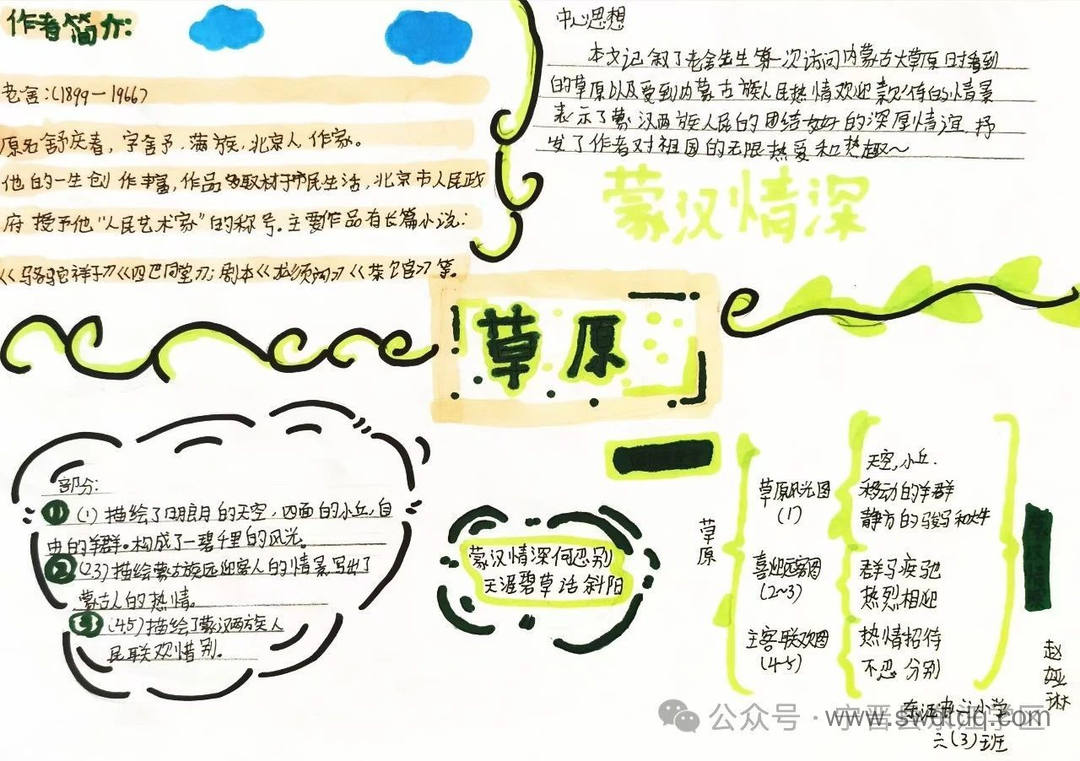 作者简介:
老舍:(1899—1966)
原名舒庆春，字舍予，满族，北京人 作家。
他的一生创作丰富，作品多取材于市民生活，北京市人民政
府授予他“人民艺术家”的称号。主要作品有长篇小说:
《骆驼祥子》《四世同堂》; 剧本《龙须沟》《茶馆》等。
中心思想
本文记叙了老舍先生第一次访问内蒙古大草原时看到
的草原以及受到内蒙古族人民热情欢迎款待的情景
表示了蒙汉两族人民的团结友好的深厚情谊，抒
发了作者对祖国的无限热爱和热趣～
蒙汉情深
草原
部分:
① (1) 描绘了明朗的天空，四面的小丘，自
由的羊群。构成了一碧千里的风光。
② (2.3) 描绘蒙古族远迎客人的情景，写出了
蒙古人的热情。
③ (4.5) 描绘了蒙汉两族人
民联欢惜别。
蒙汉情深何忍别
天涯碧草话斜阳
草原
草原风光图
(1)
天空，小丘.
移动的羊群
静立的骏马和大牛
喜迎远客图
(2~3)
群马疾驰
热烈相迎
主客联欢图
(4-5)
热情招待
不忍分别
赵娅琳
小学
六(3)班
公众号 · 宁晋县
学区
www.swdtdq.com